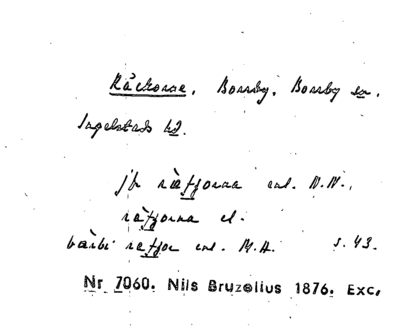 Råckorna, Borrby, Borrby sn,
Ingelstads hd.
jfr ràfjorna enl. N.N.,
ràfjorna el.
bàrbi rafjor enl. M.H. s. 43.
Nr 7060. Nils Bruzelius 1876. Exc.